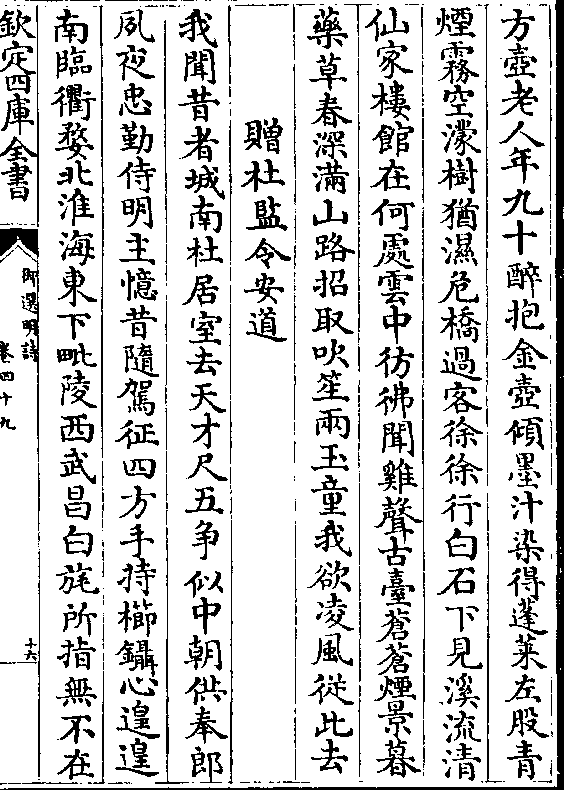 方壺老人年九十醉抱金壺傾墨汁染得蓬萊左股青
煙霧空濛樹猶濕危橋過客徐徐行白石下見溪流清
仙家樓館在何處雲中彷彿聞雞聲古臺蒼蒼煙景暮
藥草春深滿山路招取吹笙兩玉童我欲凌風從此去
贈杜監令安道
我聞昔者城南杜居室去天才尺五争似中朝供奉郎
夙夜忠勤侍明主憶昔隨駕征四方手持櫛鑷心遑遑
南臨衢婺北淮海東下毗陵西武昌白旄所指無不在
欽定四庫全書
御選明詩
卷四十九
十六